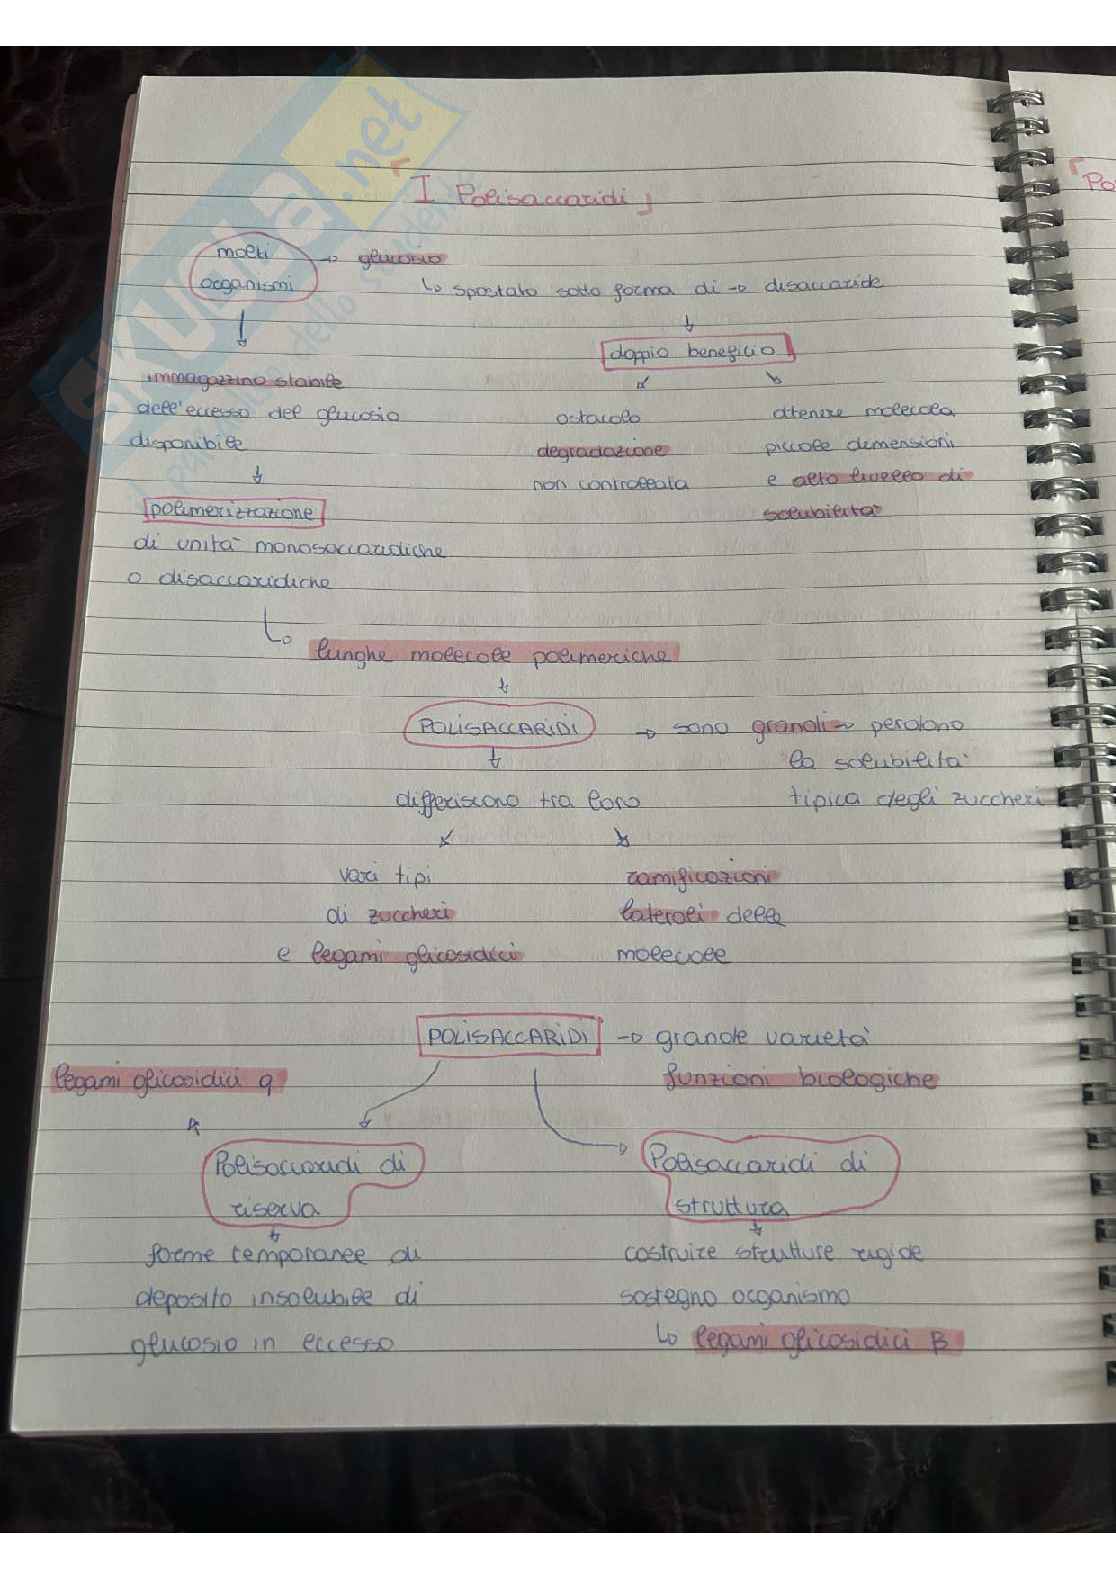 「I Polisaccaridi」
molti organismi → glucosio
↳ spostato sotto forma di → disaccaride
doppio beneficio
immagazzino stabile
dell'eccesso del glucosio
disponibile
polimerizzazione
di unità monosaccaridiche
o disaccaridiche
ostacolo
degradazione
non controllata
ottenere molecola
piccole dimensioni
e alto livello di
solubilità
↳ lunghe molecole polimeriche
POLISACCARIDI → sono granoli ~ perdono
la solubilità
tipica degli zuccheri
differiscono tra loro
vari tipi
di zuccheri
e legami glicosidici
ramificazioni
laterali delle
molecole
POLISACCARIDI → grande varietà
funzioni biologiche
legami glicosidici α
Polisaccaridi di
riserva
forme temporanee di
deposito insolubile di
glucosio in eccesso
Polisaccaridi di
struttura
costruire strutture rigide
sostegno organismo
↳ legami glicosidici β
「Po
SKUOLA.net